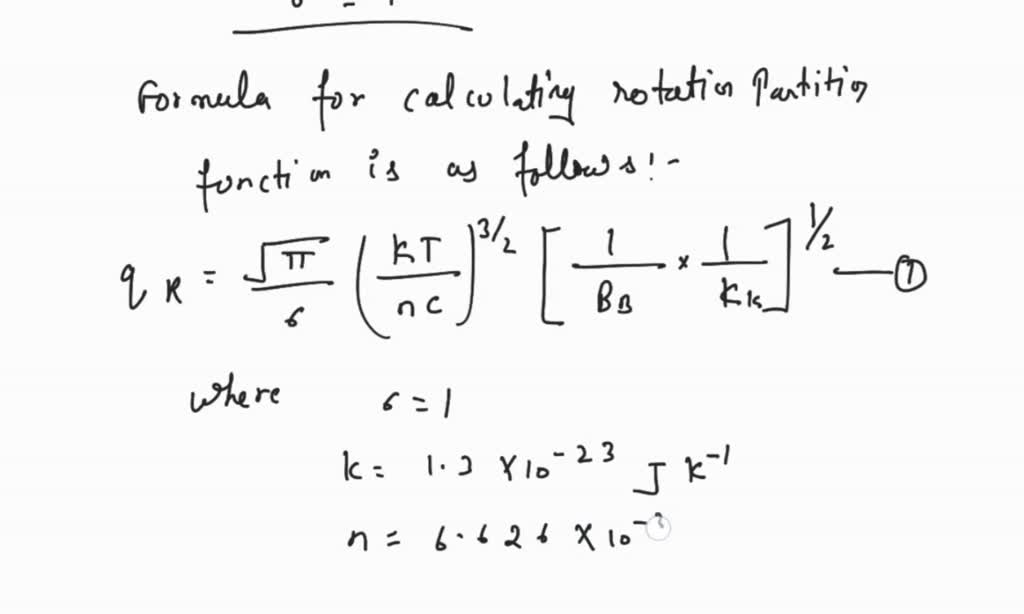 Formula for calculating rotation Partition
function is as follows:-
qR = √π/σ (kT/nc)^3/2 [1/BB × 1/Kk]^1/2 —①
where σ = 1
k = 1.3 × 10^-23 J k^-1
n = 6.626 × 10^-3